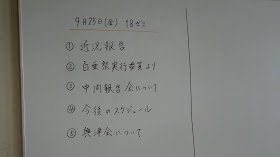 9月25日(金) 18ゼミ
① 近況報告
② 白亜祭実行委員より
③ 中間報告会について
④ 今後のスケジュール
⑤ 興津会について